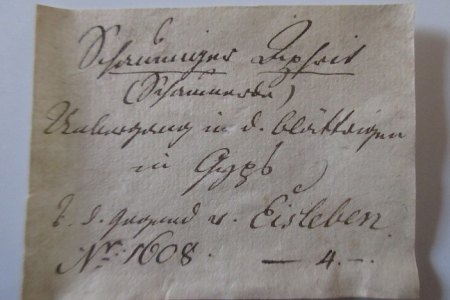 Schaumiger Aphrit
(Schaumerde)
Uebergang in d. blättrigen
in Gyps
d. Gegend v. Eisleben.
No 1608. — 4. —